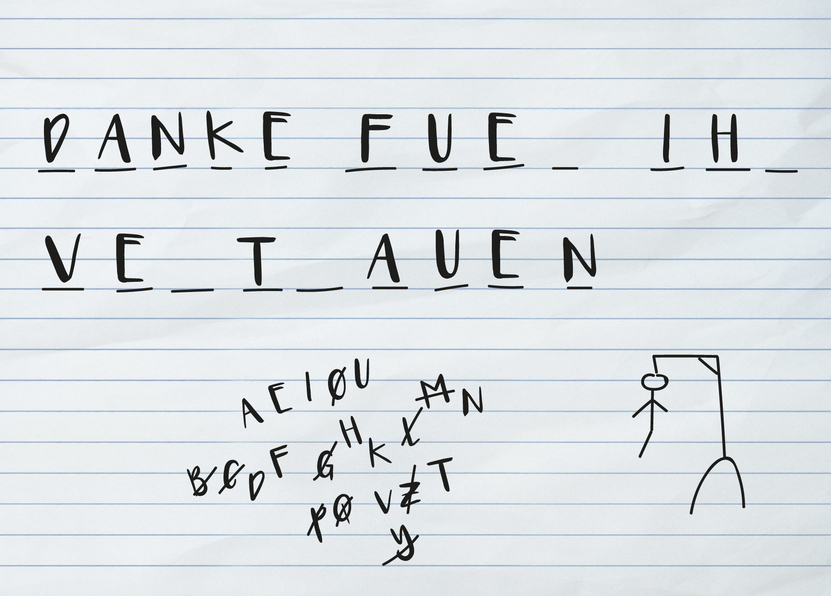 DANKE FUE_ IH_
VE_T_AUEN
A E I O U M N
B C D F G H K X
P Q V Z T
Y